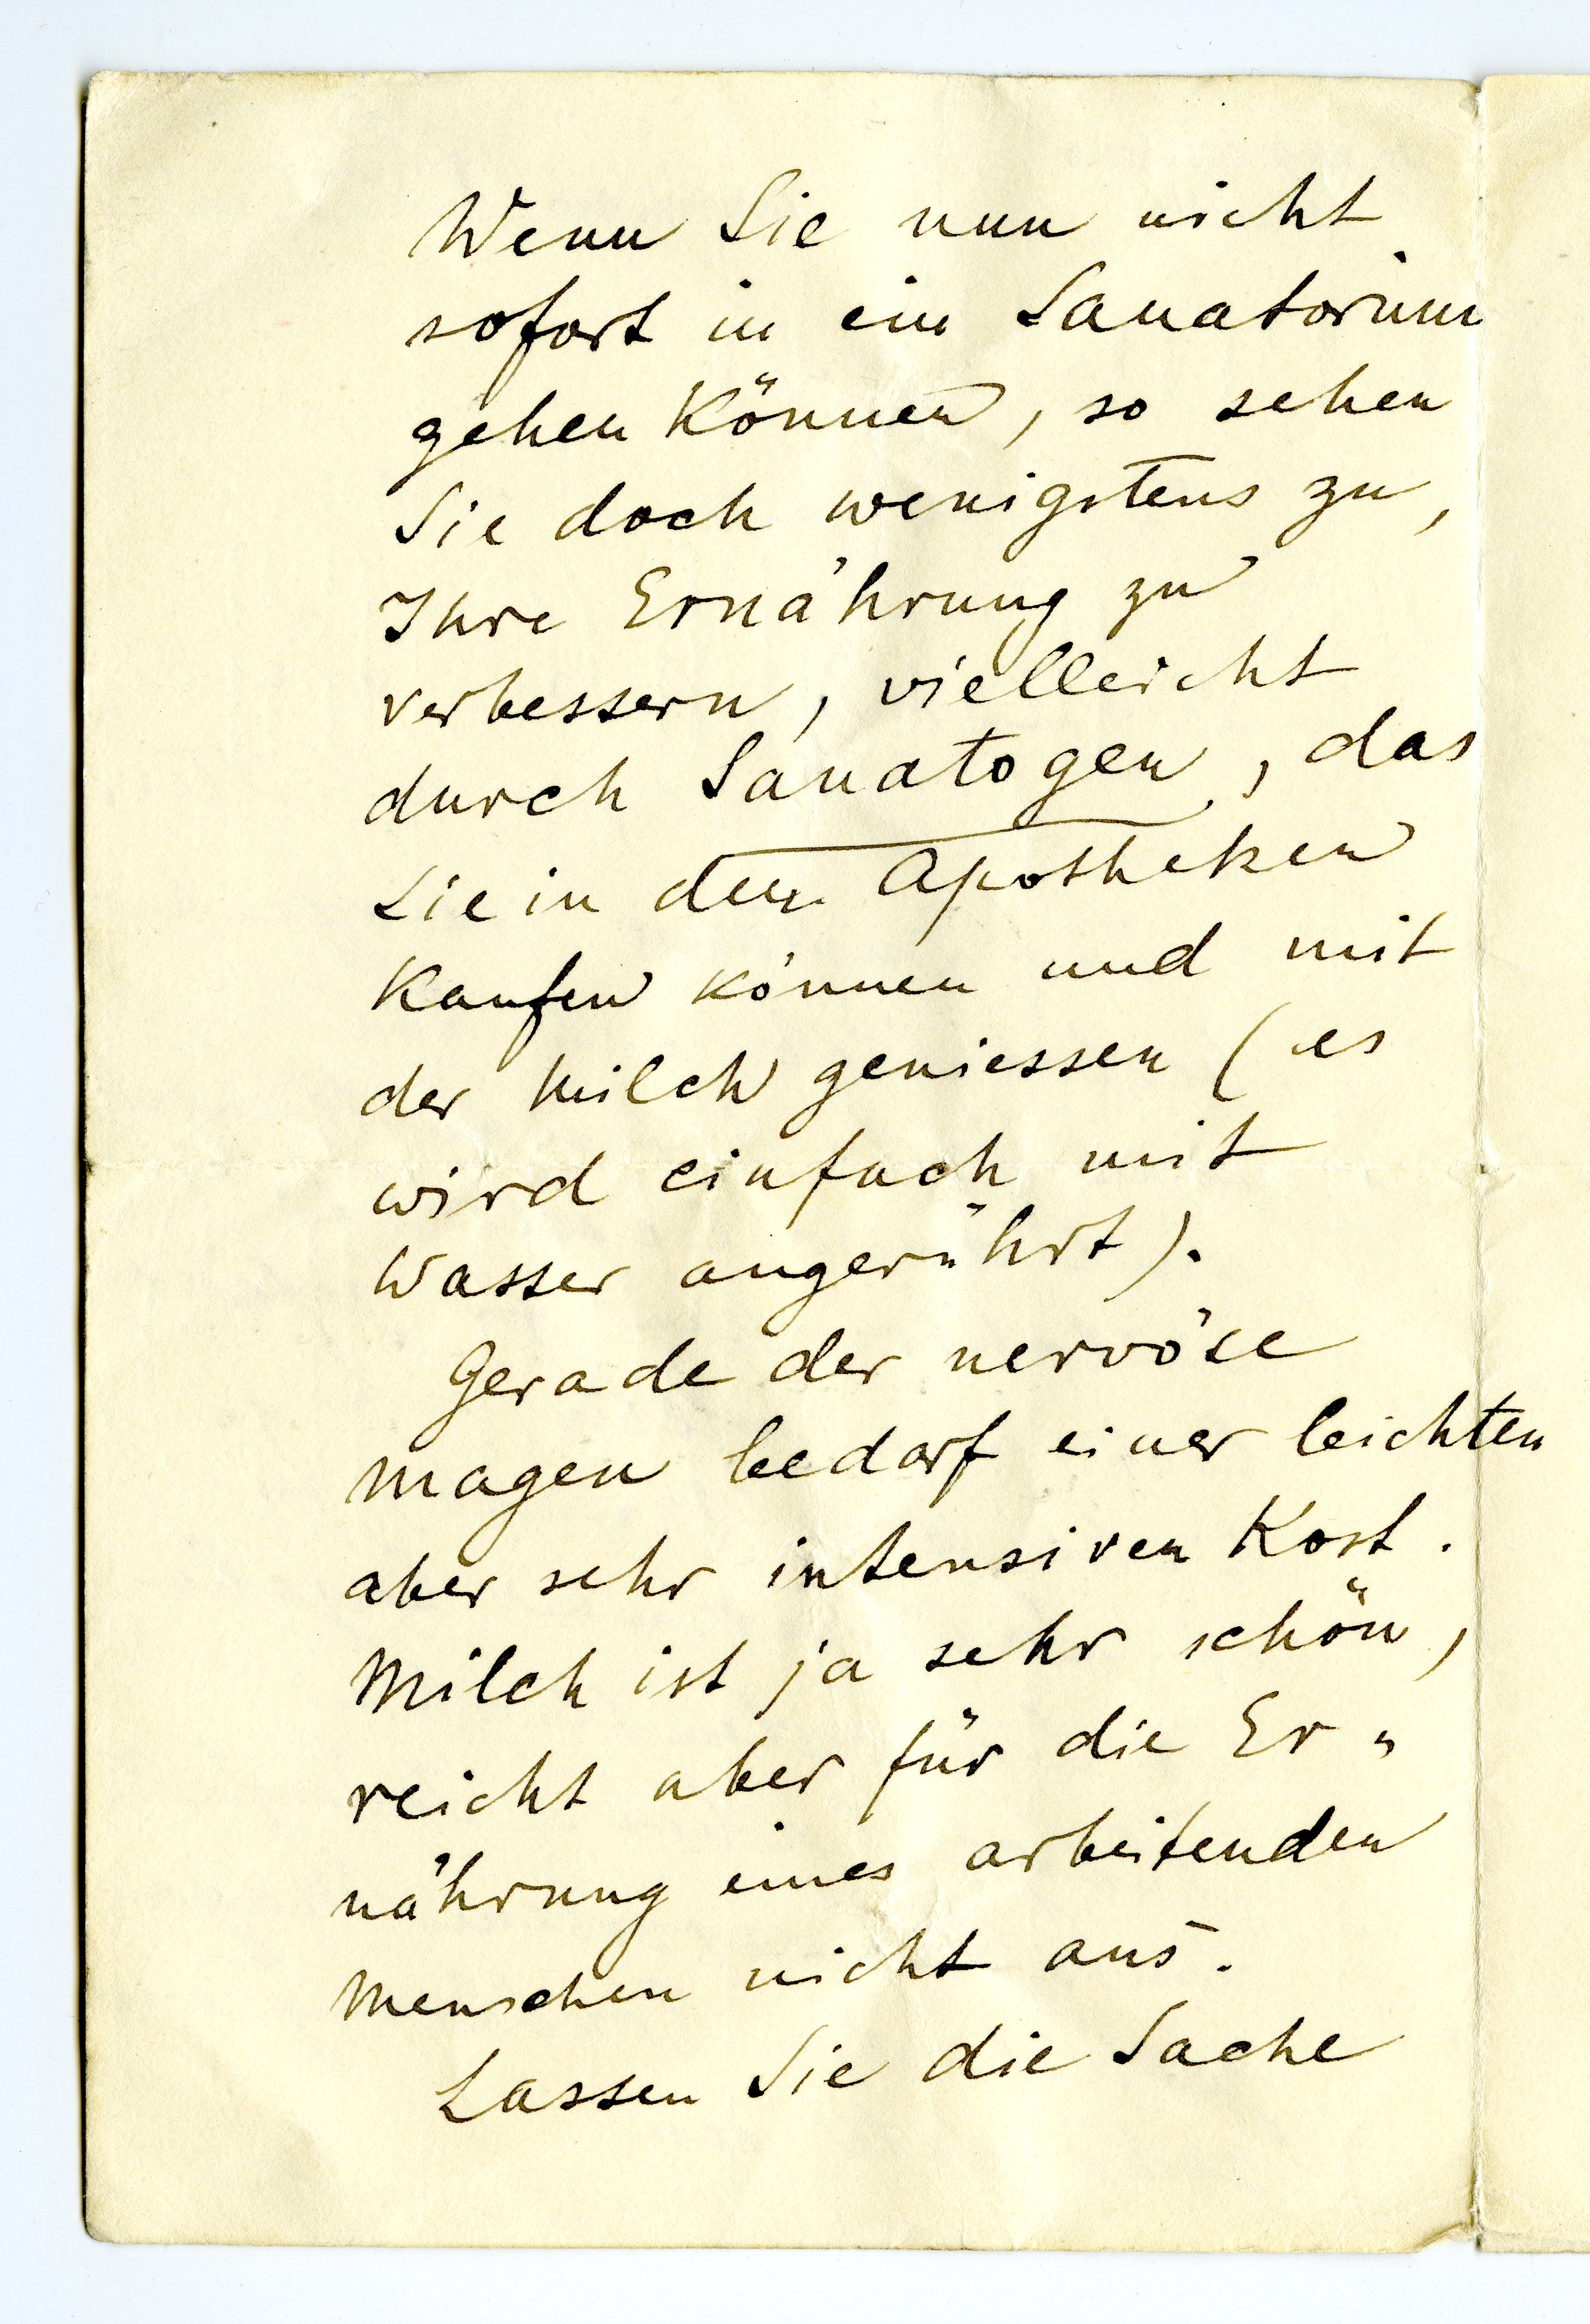 Wenn Sie nun nicht
sofort in ein Sanatorium
gehen können, so sehen
Sie doch wenigstens zu,
Ihre Ernährung zu
verbessern, vielleicht
durch Sanatogen, das
Sie in den Apotheken
kaufen können und mit
der Milch geniessen (es
wird einfach mit
Wasser angerührt).
Gerade der nervöse
Magen bedarf einer leichten
aber sehr intensiven Kost.
Milch ist ja sehr schön,
reicht aber für die Er=
nährung eines arbeitenden
Menschen nicht aus.
Lassen Sie die Sache